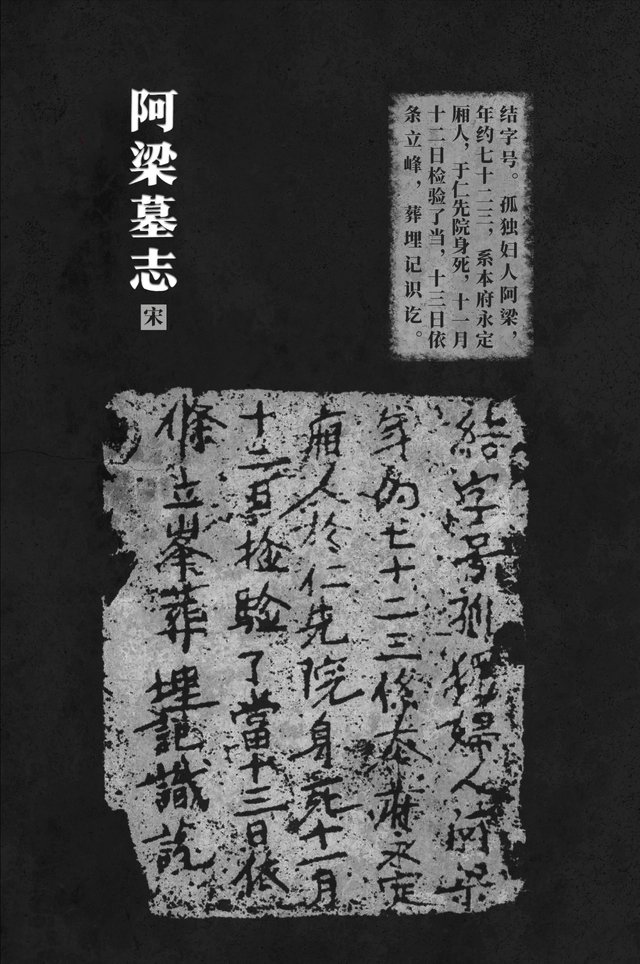 阿梁墓志
宋
结字号。孤独妇人阿梁，
年约七十二三，系本府永定
厢人，于仁先院身死，十一月
十二日检验了当，十三日依
条立峰，葬埋记识讫。
結字号孤獨婦人阿梁
年約七十二三係本府永定
廂人於仁先院身死十一月
十二日撿驗了當十三日依
條立峯葬埋記識訖